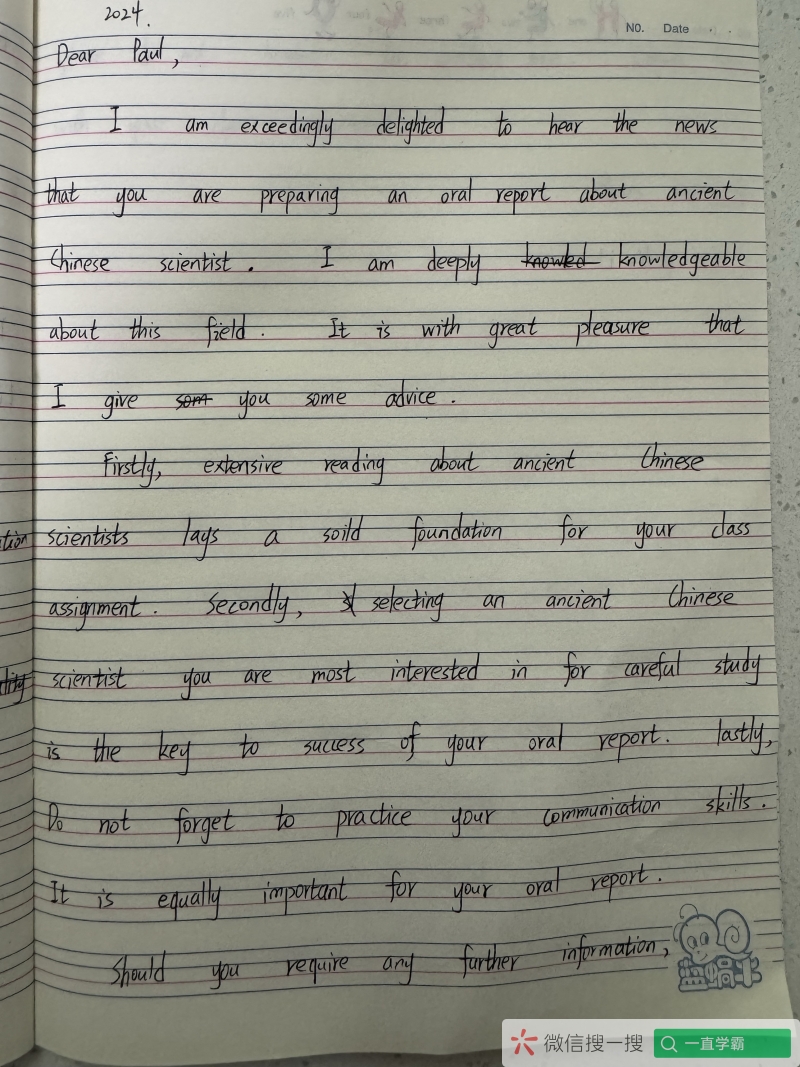 2024.
NO. Date
Dear Paul,
I am exceedingly delighted to hear the news
that you are preparing an oral report about ancient
Chinese scientist. I am deeply knowled knowledgeable
about this field. It is with great pleasure that
I give som you some advice.
Firstly, extensive reading about ancient Chinese
tion scientists lays a soild foundation for your class
assignment. Secondly, selecting an ancient Chinese
scientist you are most interested in for careful study
is the key to success of your oral report. lastly,
Do not forget to practice your communication skills.
It is equally important for your oral report.
Should you require any further information,
蓝蜗牛
微信搜一搜 一直学霸